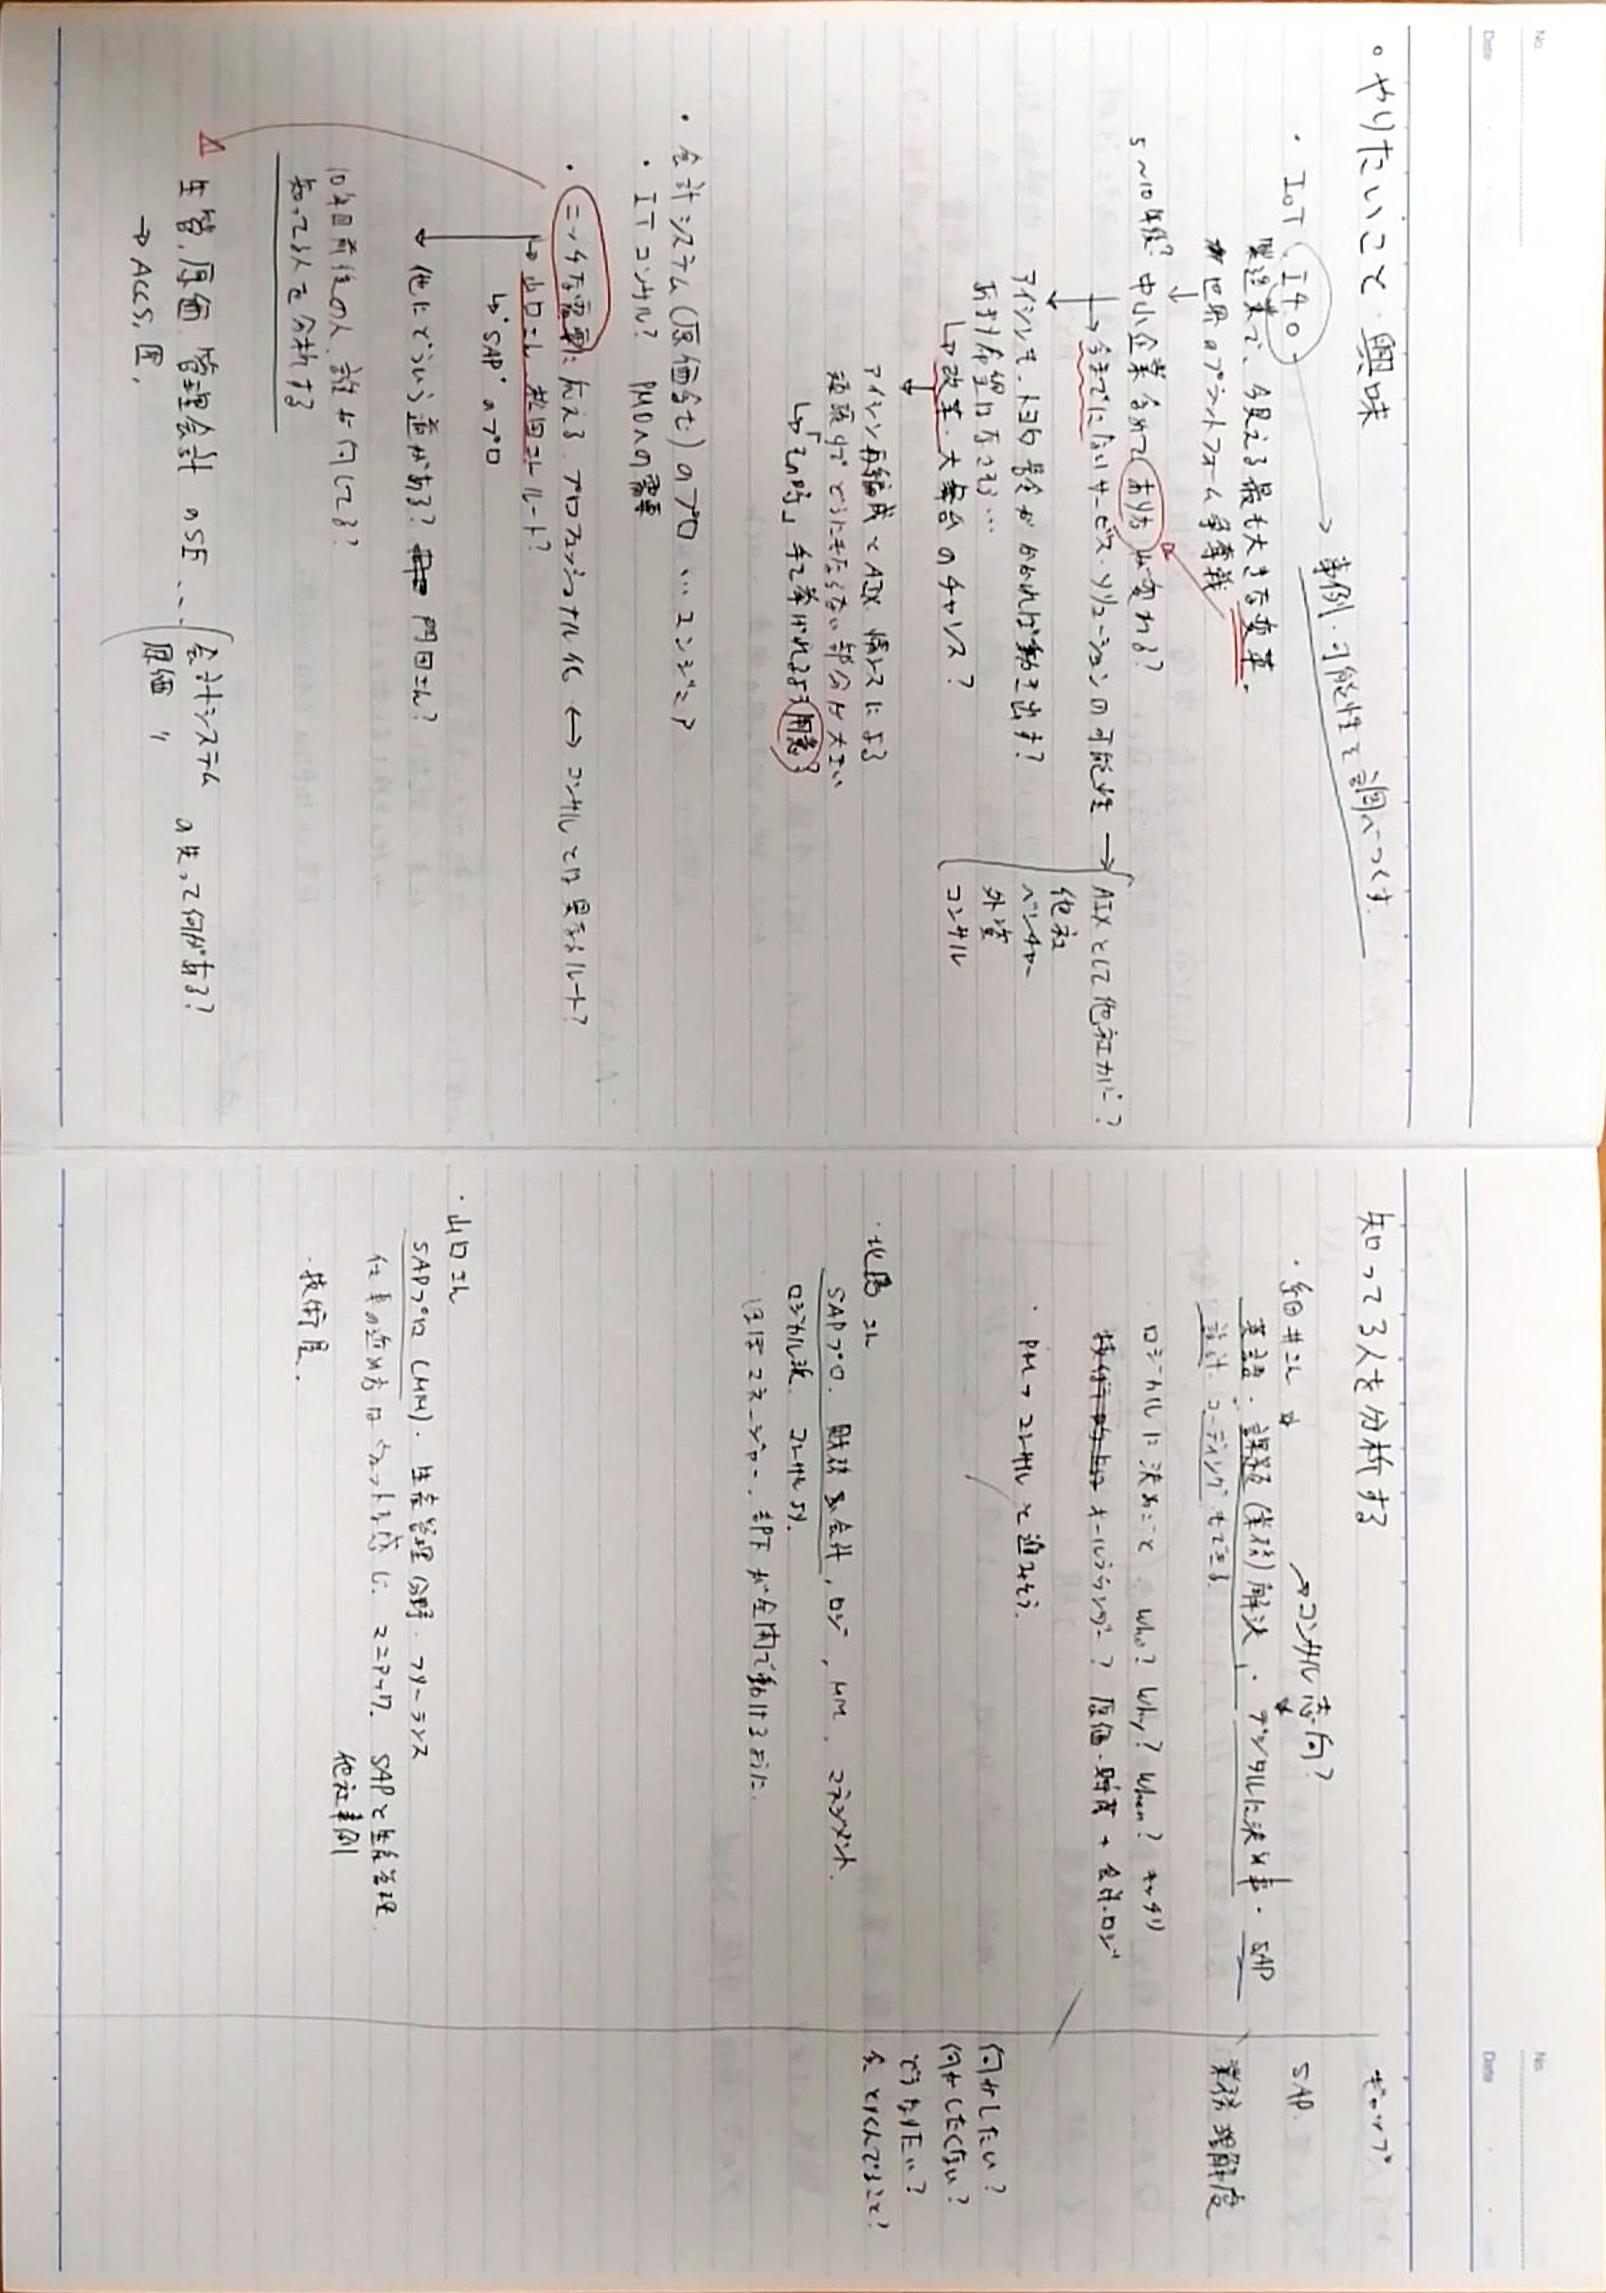 No.
Date
・やりたいこと・興味
→ 事例・可能性を調べつくす.
・IoT、I4.0
製造業で、今見える最も大きな変革.
世界のプラットフォーム争奪戦
↓
5~10年後? 中小企業含めてあり方が変わる?
→ 今までにないサービス・ソリューションの可能性 →
AIXとして他社カバー?
他社
ベンチャー
外資
コンサル
アイシンも、トヨタ号令がかかれば動き出す?
あまり希望はなさそう…
↳ 改革・大舞台のチャンス?
↓
アイシン再編成とAIX、情シスによる
頑張りでどうにもならない部分が大きい
↳「その時」手を挙げれるよう用意する
・会計システム(原価含む)のプロ … エンジニア
・ITコンサル? PMOへの需要
・ニッチな需要に応える プロフェッショナル化 ←→ コンサルとは異なるルート?
↳ 山口さん、松田さんルート?
↳ "SAP"のプロ
他にどういう道がある? 門田さん?
10年目前後の人、誰が何してる?
知ってる人を分析する
生管、原価、管理会計のSE …
会計システム
原価 〃
の先って何がある?
→ ACCS, 匠,
No.
Date
知ってる人を分析する
ギャップ
・細井さん
→コンサル志向?
英語・課題(業務)解決、・デジタルに決め事・SAP
設計、コーディングもできる.
ロジカルに決めごと Who? Why? When? キッチリ
オールラウンダー? 原価・財務 + 会計・ロジ
・PM→コンサルと進みそう.
SAP.
業務理解度
何がしたい?
何がしたくない?
どうなりたい?
今、とりくんでること?
・北島さん
SAPプロ. 財務&会計, ロジ, MM, マネジメント.
ロジカル派. コンサルより.
ほぼマネージャー. 部下が全開で動けるように.
・山口さん
SAPプロ (MM)・生産管理分野・フリーランス
仕事の進め方はウェットな感じ. マニアック. SAPと生産管理.
他社事例
・技術屋.